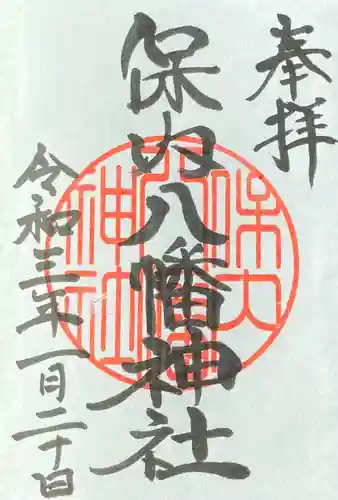 奉拝
保内八幡神社
令和三年一月二十日
保内
八幡
神社